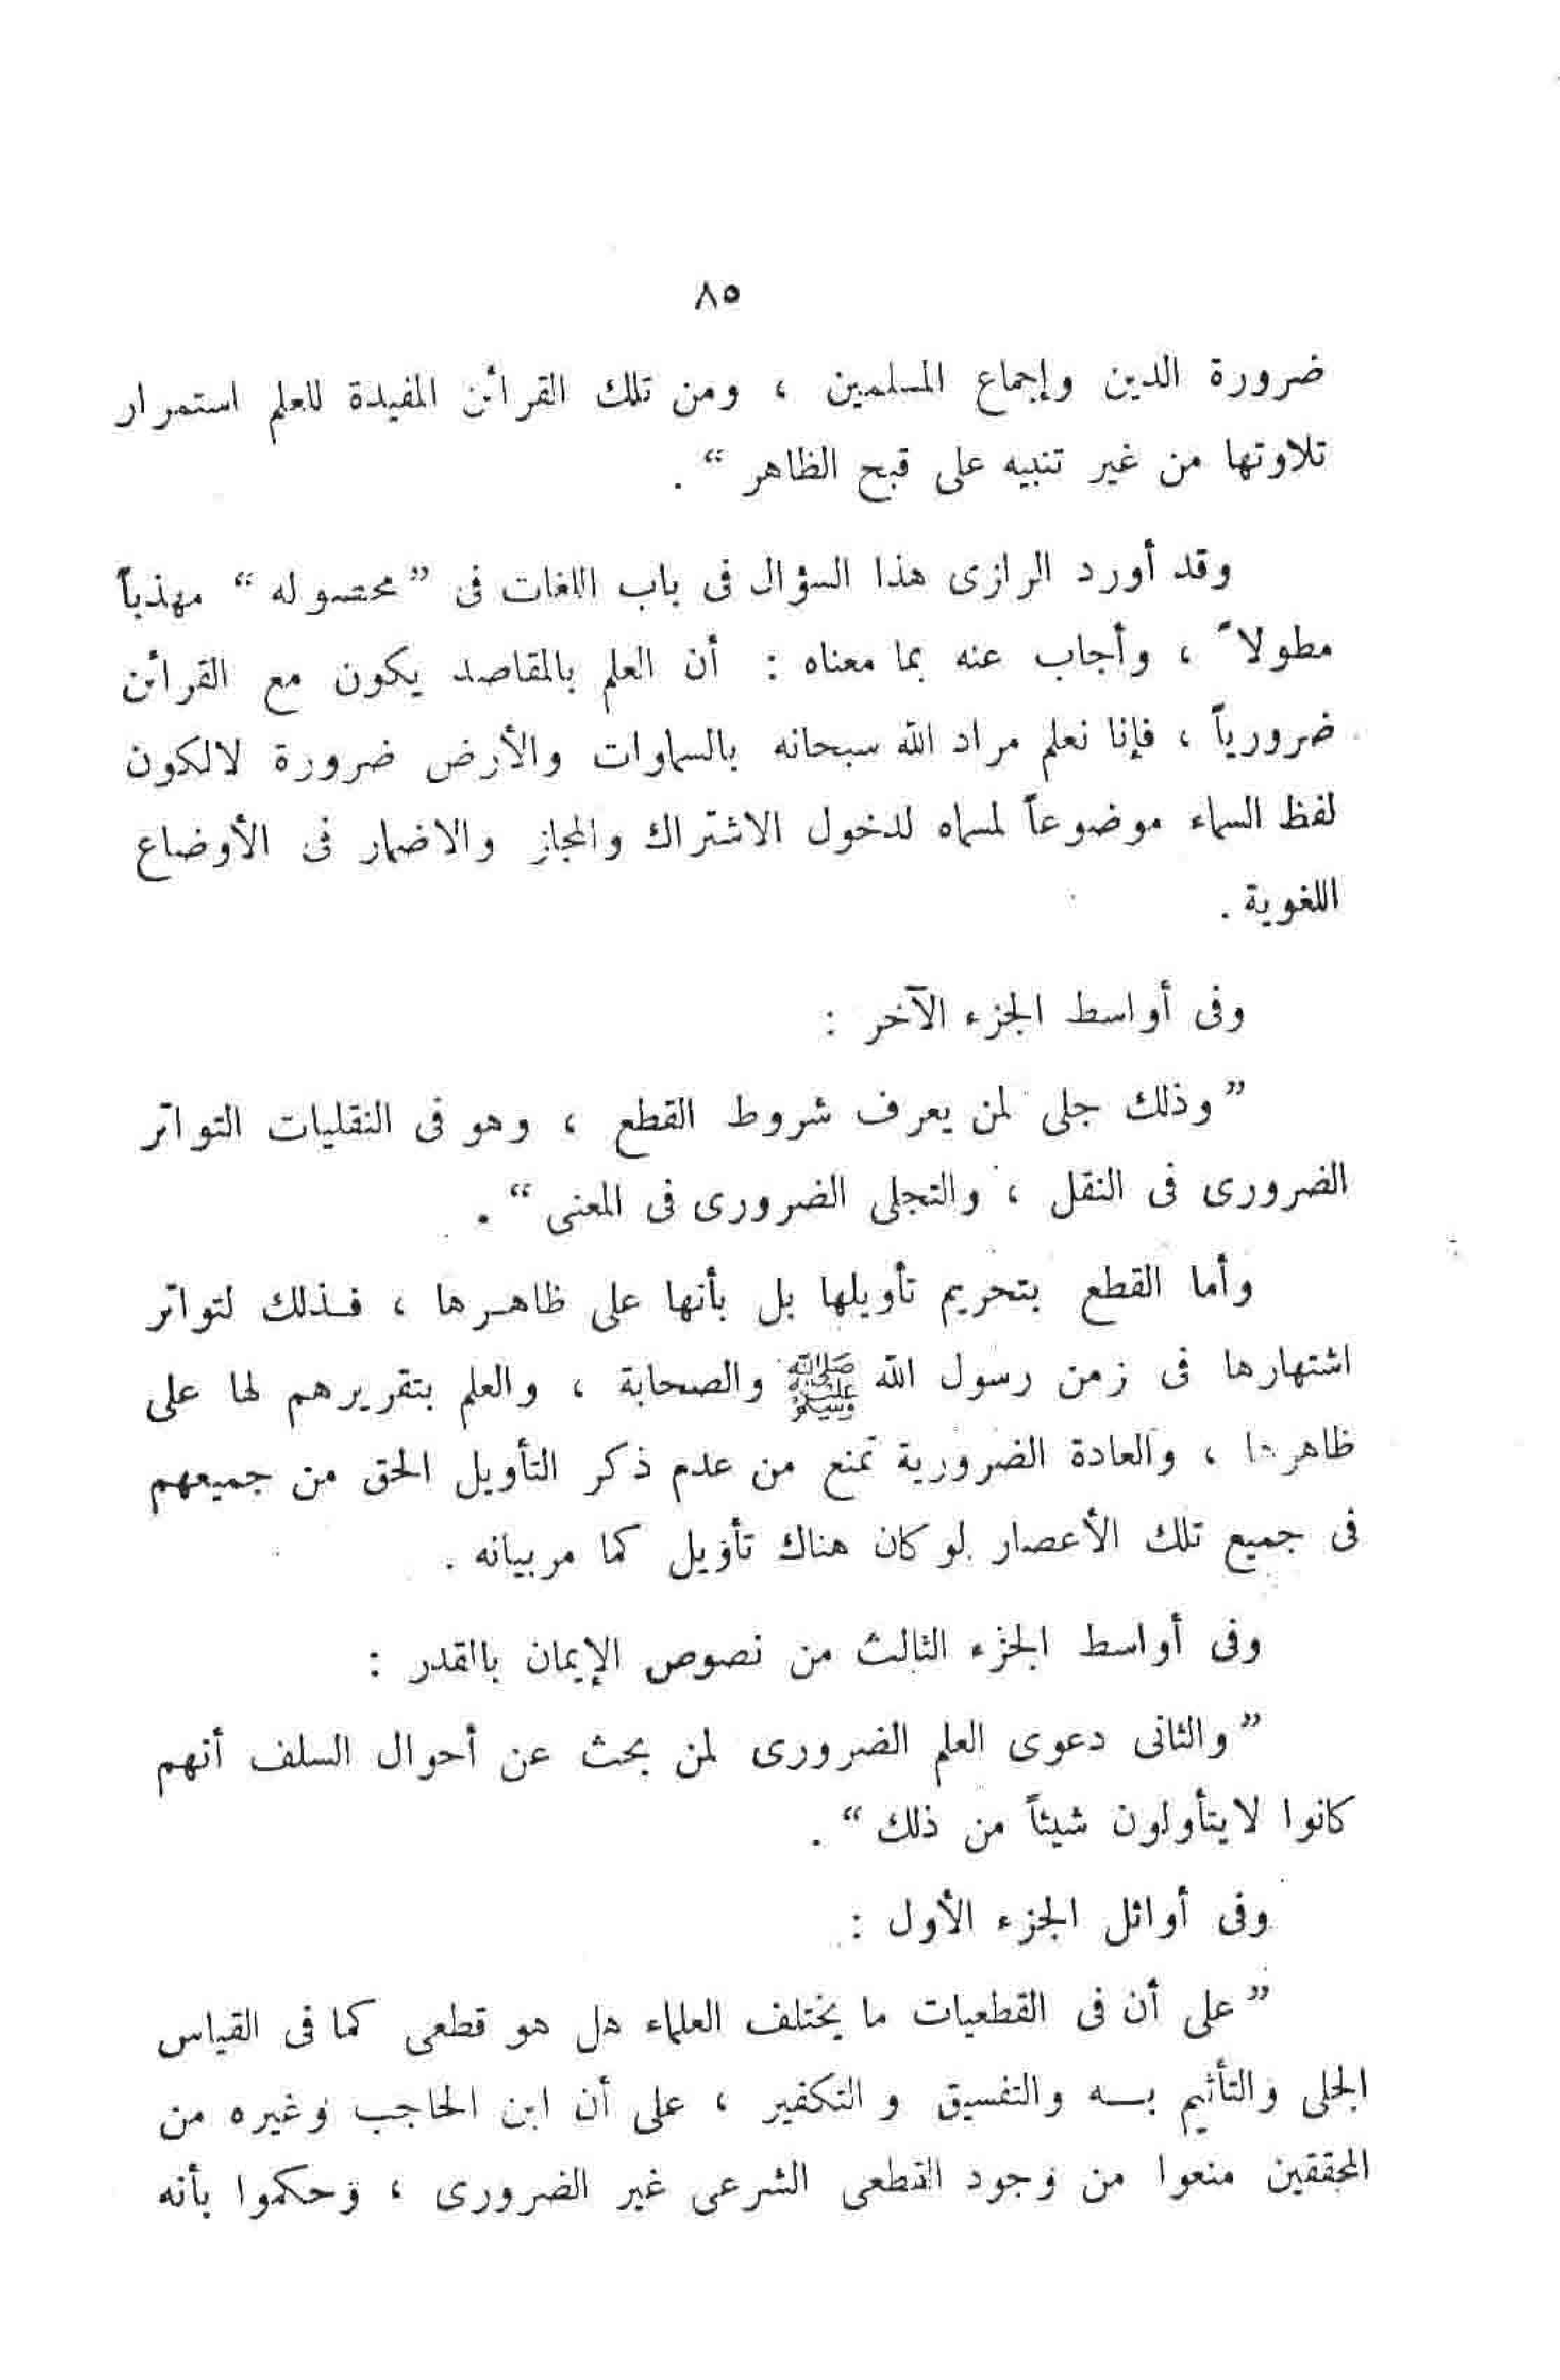 ٨٥
ضرورة الدين وإجماع المسلمين ، ومن تلك القرائن المفيدة للعلم استمرار
تلاوتها من غير تنبيه على قبح الظاهر “ .
وقد أورد الرازى هذا السؤال فى باب اللغات فى ” محصوله “ مهذباً
مطولاً ، وأجاب عنه بما معناه : أن العلم بالمقاصد يكون مع القرائن
ضرورياً ، فإنا نعلم مراد الله سبحانه بالسماوات والأرض ضرورة لالكون
لفظ السماء موضوعاً لمسماه لدخول الاشتراك والمجاز والاضمار فى الأوضاع
اللغوية .
وفى أواسط الجزء الآخر :
” وذلك جلى لمن يعرف شروط القطع ، وهو فى النقليات التواتر
الضرورى فى النقل ، والتجلى الضرورى فى المعنى “ .
وأما القطع بتحريم تأويلها بل بأنها على ظاهرها ، فذلك لتواتر
اشتهارها فى زمن رسول الله ﷺ والصحابة ، والعلم بتقريرهم لها على
ظاهرها ، والعادة الضرورية تمنع من عدم ذكر التأويل الحق من جميعهم
فى جميع تلك الأعصار لو كان هناك تأويل كما مر بيانه .
وفى أواسط الجزء الثالث من نصوص الإيمان باالقدر :
” والثانى دعوى العلم الضرورى لمن بحث عن أحوال السلف أنهم
كانوا لايتأولون شيئاً من ذلك “ .
وفى أوائل الجزء الأول :
” على أن فى القطعيات ما يختلف العلماء هل هو قطعى كما فى القياس
الجلى والتأثيم بـه والتفسيق و التكفير ، على أن ابن الحاجب وغيره من
المحققين منعوا من وجود القطعى الشرعى غير الضرورى ، وحكموا بأنه